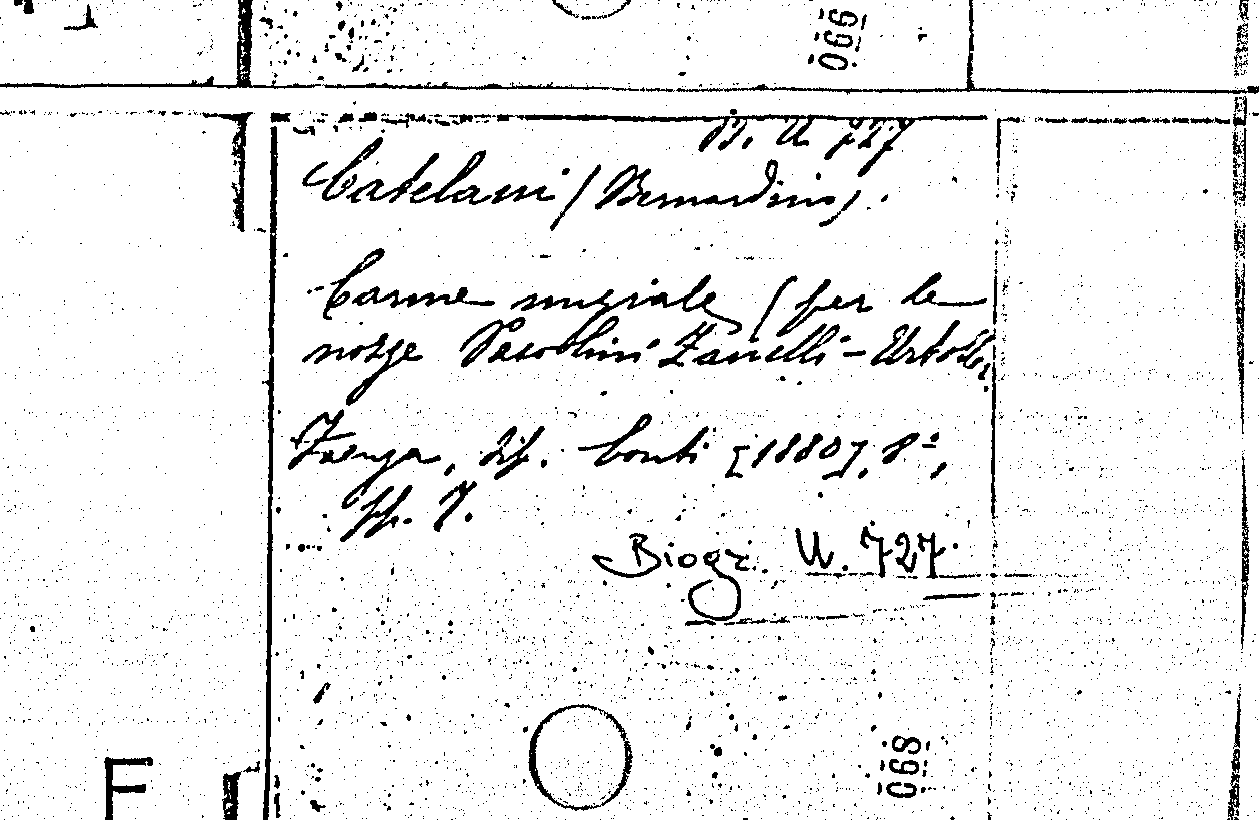 066
B. U. 727
Catelani (Bernardino).
Carme nuziale (per le
nozze Pasolini Zanelli-
Faenza, tip. Conti [1880], 8º,
pp. 7.
Biogr. U. 727.
068
F